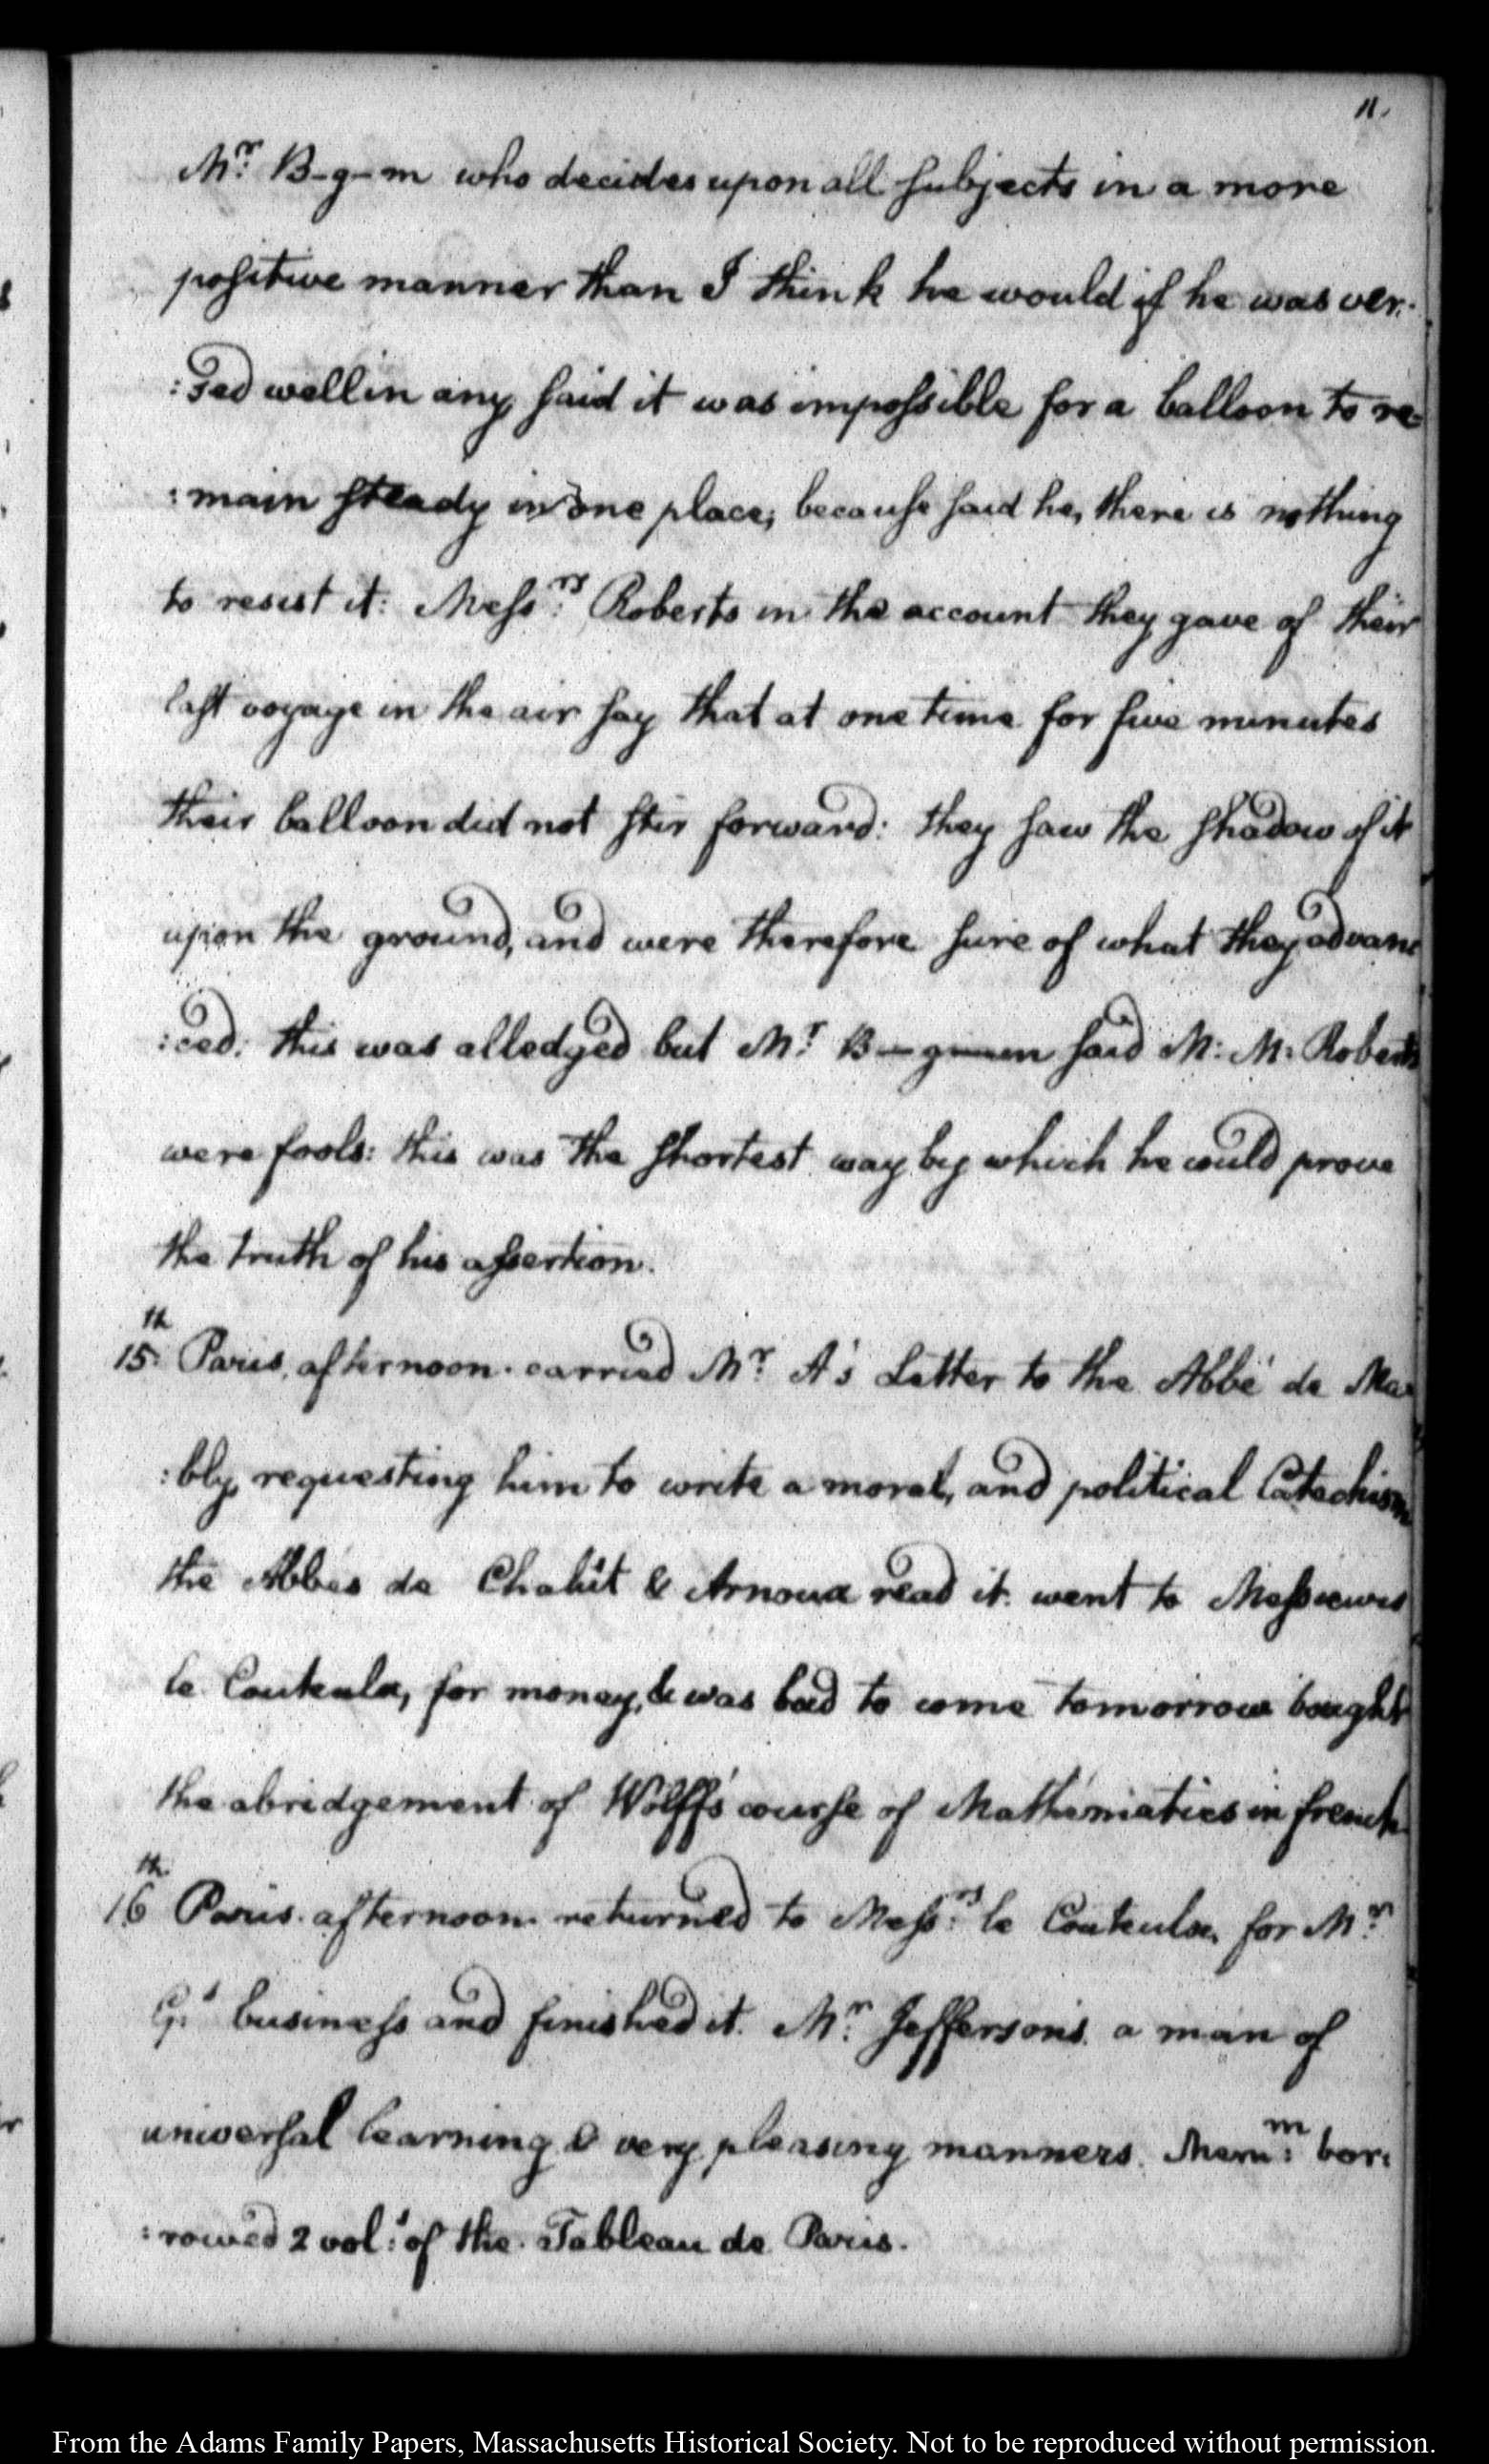 11.
Mr. B-g-m who decides upon all subjects in a more
positive manner than I think he would if he was ver:
:sed well in any, said it was impossible for a balloon to re=
:main steady in one place; because said he, there is nothing
to resist it: Messrs. Roberts in the account they gave of their
last voyage in the air say that at one time for five minutes
their balloon did not stir forward: they saw the shadow of it
upon the ground, and were therefore sure of what they advan
:ced: this was alledged but Mr. B-g-m said M: M: Roberts
were fools: this was the shortest way by which he could prove
the truth of his assertion.
15th. Paris, afternoon. carried Mr. A's Letter to the Abbé de Ma=
:bly, requesting him to write a moral, and political Catechism
the Abbés de Chalût & Arnoux read it. went to Messieurs
le Couteulx, for money, & was bad to come tomorrow bought
the abridgement of Wolff's course of Mathematics in french
16th Paris. afternoon. returned to Messrs. le Couteulx, for Mr.
G's business and finished it. Mr. Jefferson's. a man of
universal learning & very pleasing manners. Mem: bor:
:rowed 2 vols: of the Tableau de Paris.
From the Adams Family Papers, Massachusetts Historical Society. Not to be reproduced without permission.